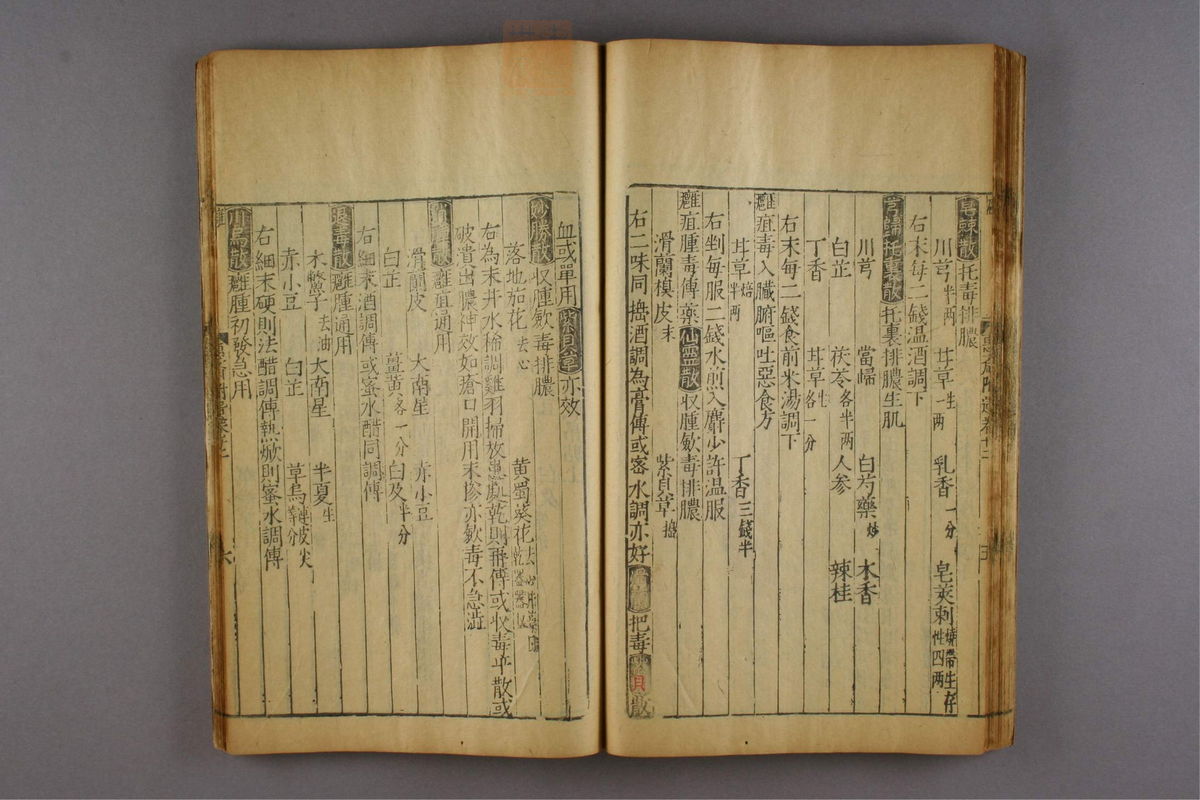 皂蔾散托毒排膿
川芎半兩 甘草生一兩 乳香一分 皂莢刺燒帶生存性四兩
右末每二錢溫酒調下
托裏散托裏排膿生肌
川芎 當歸 白芍藥炒 木香
白芷 茯苓各半兩 人參 辣桂
丁香 甘草生各一分
右末每二錢食前米湯調下
癰疽毒入臟腑嘔吐惡食方
甘草焙半兩 丁香三錢半
右剉每服二錢水煎入麝少許温服
癰疽腫毒傅藥仙靈散収腫歛毒排膿
滑蘭模皮末 紫貝草搗
右二味同搗酒調為膏傅或宻水調亦好 把毒 散
血或單用紫貝草亦效
妙勝散収腫歛毒排膿
落地茄花去心 黄蜀葵花去心
右為末井水稀調雞羽掃放患處乾則再傅或収毒平散或
破潰出膿神效如瘡口開用末摻亦歛毒不急澁
癰疽通用
滑蘭皮 大南星 赤小豆
白芷 薑黄各一分 白及半分
右細末酒調傅或蜜水醋同調傅
退毒散癰腫通用
木鱉子去油 大南星 半夏生
赤小豆 白芷 草烏 皮尖 分
右細末硬則法醋調傅熱焮則蜜水調傅
川烏散癰腫初發急用